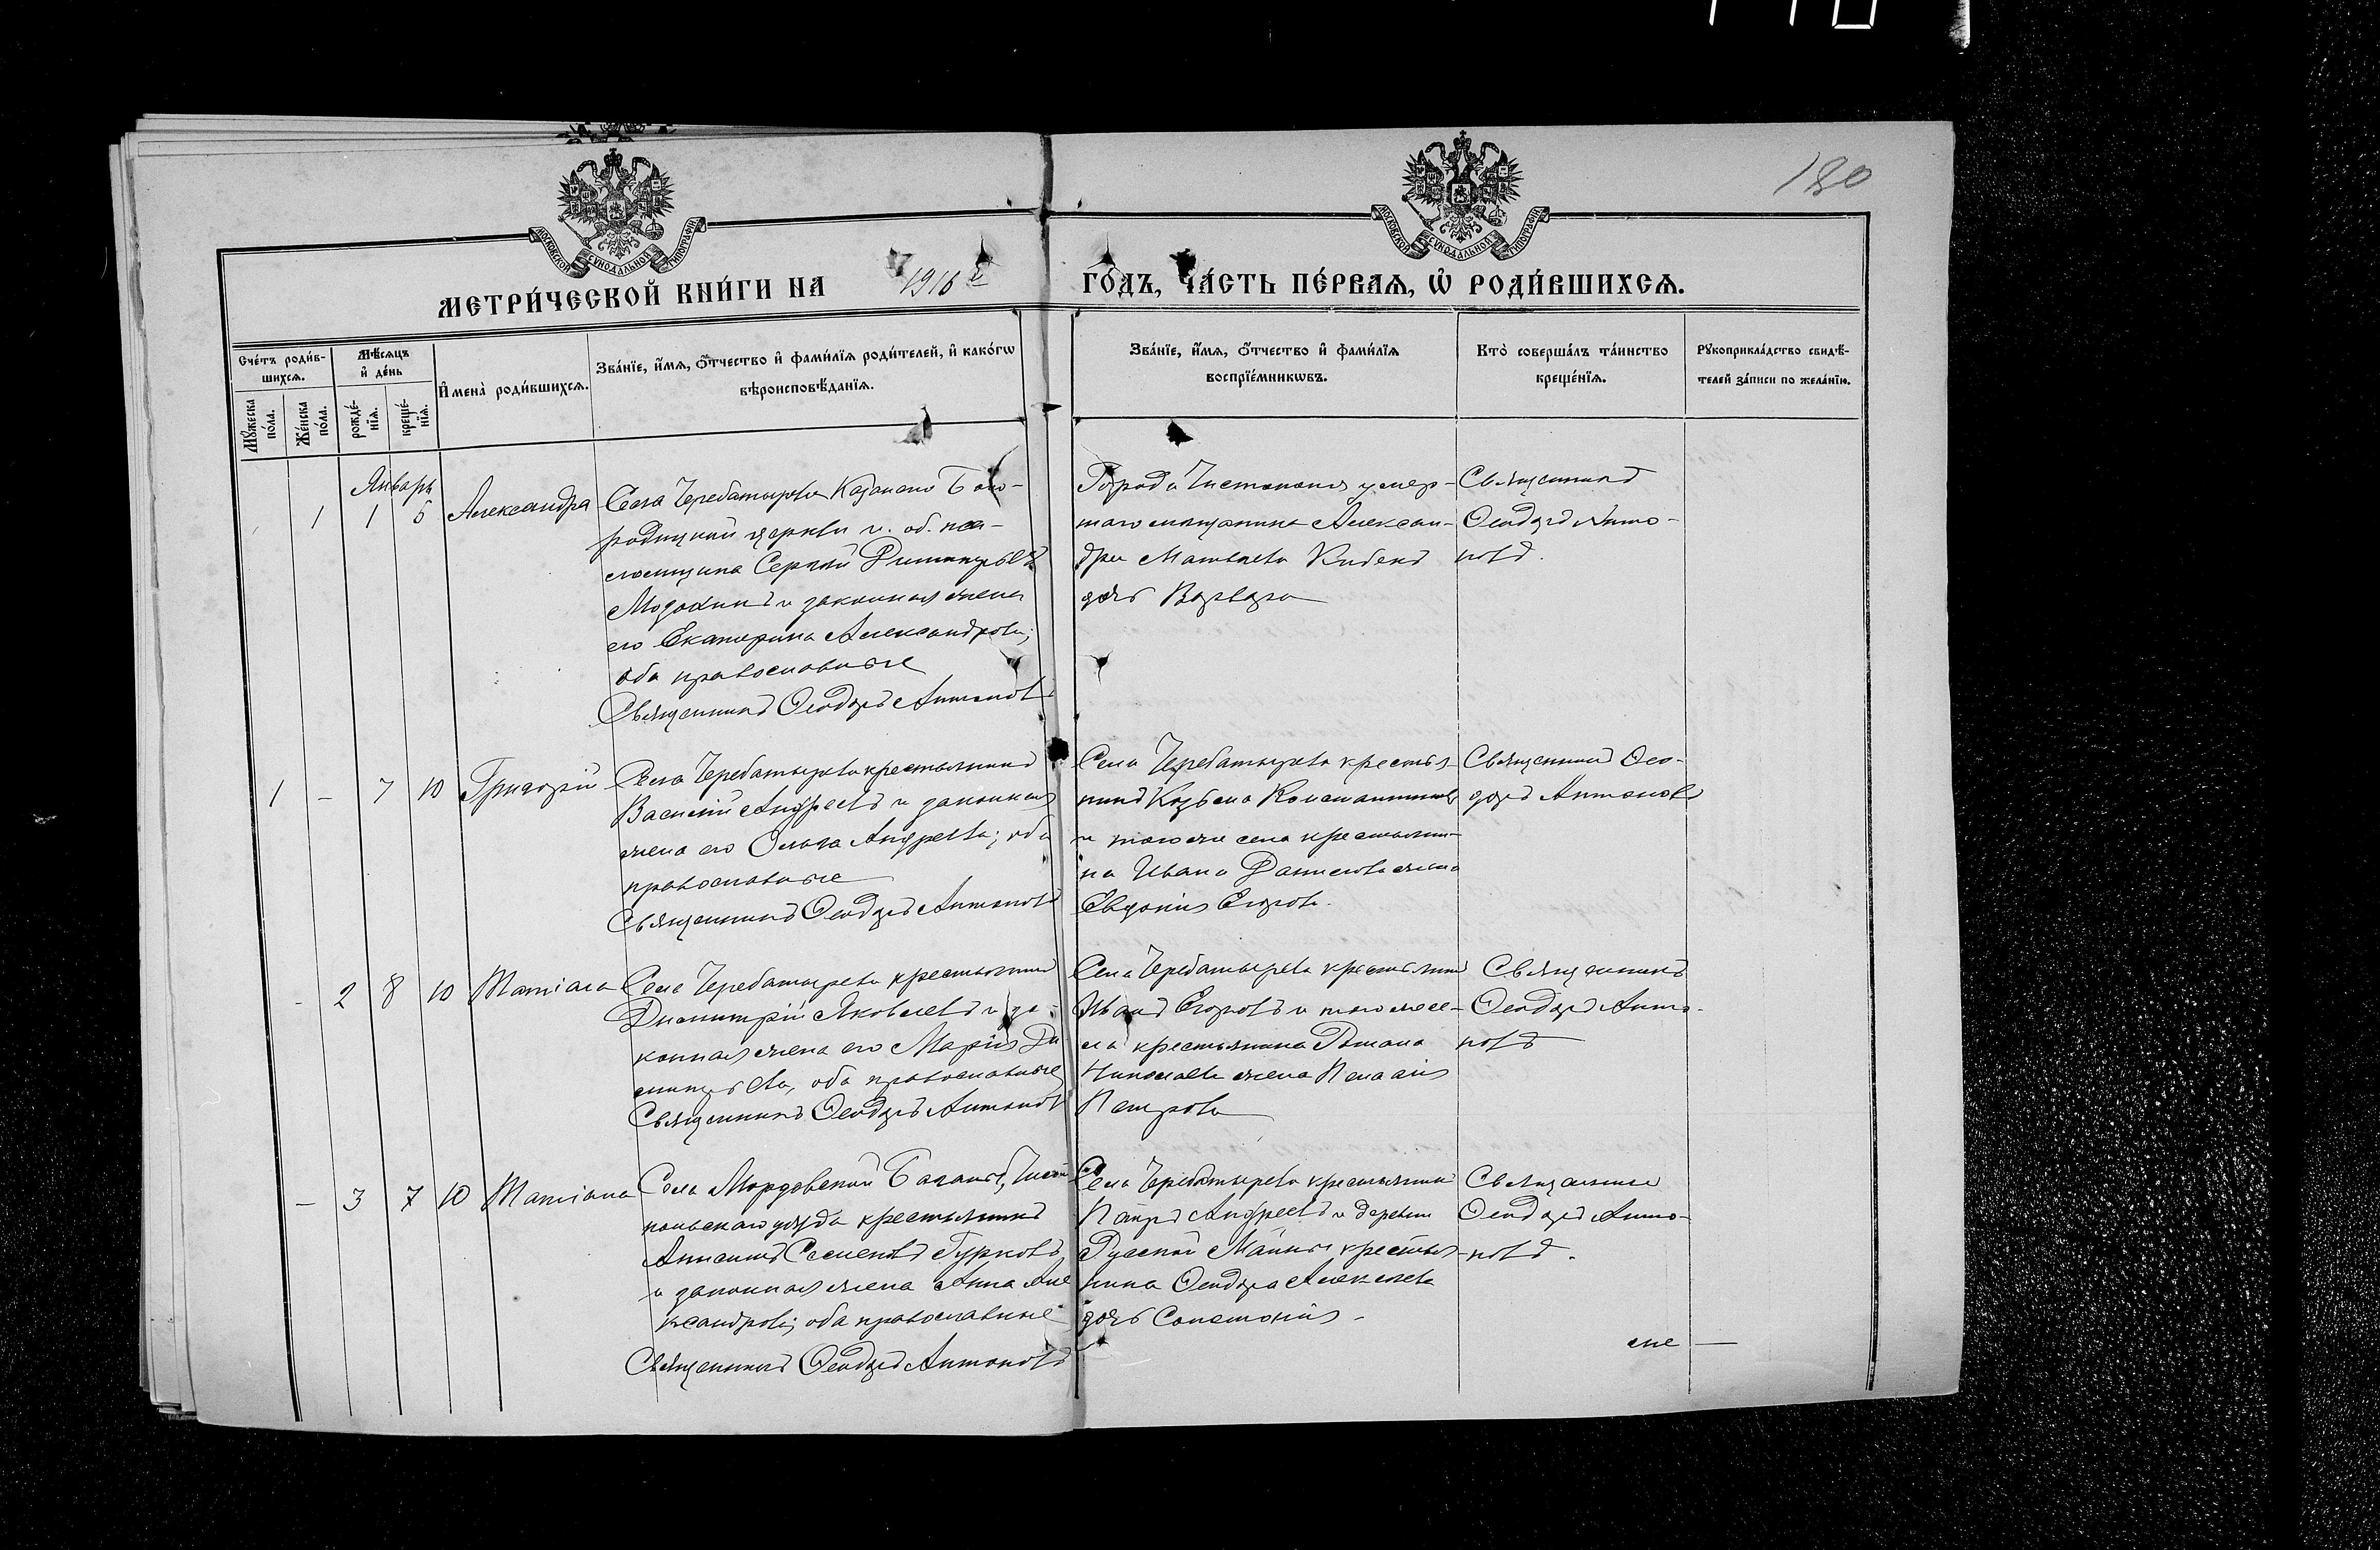 180
МОСКОВСКОЙ СѴНОДАЛЬНОЙ ТИПОГРАФІИ
МОСКОВСКОЙ СѴНОДАЛЬНОЙ ТИПОГРАФІИ
МЕТРИ́ЧЕСКОЙ КНИ́ГИ НА 1916 г. ГО́ДЪ, ЧА́СТЬ ПЕ́РВАѦ, Ѡ҆ РОДИ́ВШИХСѦ.
Сче́тъ роди́в-
шихсѧ.
Мꙋ́жеска по́ла.
Же́нска по́ла.
Мѣ́сѧцъ
и҆ де́нь
рожде́-
нїѧ.
креще́-
нїѧ.
И҆мена̀ роди́вшихсѧ.
Зва́нїе, и҆́мѧ, ѻ҆́тчество и҆ фами́лїѧ роди́телей, и҆ како́гѡ
вѣроисповѣ́данїѧ.
Зва́нїе, и҆́мѧ, ѻ҆́тчество и҆ фами́лїѧ
воспрїе́мникѡвъ.
Кто̀ соверша́лъ та́инство
креще́нїѧ.
Рꙋкоприкла́дство свидѣ́-
телей за́писи по жела́нїю.
Январь
1 1 5 Александра
Села Черебатырева Казанско Бого-
родицкой церкви и. об. пса-
ломщика Сергѣй Димитріевъ
и законная жена
его Екатерина Александрова;
оба православные
Священникъ Ѳеодоръ Антоновъ
Города Чистополя умер-
шаго мѣщанина Алексан-
дра Матвѣева
дочь Варвара
Священникъ
Ѳеодоръ Анто-
новъ.
1 – 7 10 Григорій
Села Черебатырева крестьянинъ
Василій Андреевъ и законная
жена его Ольга Андреева; оба
православные
Священникъ Ѳеодоръ Антоновъ
Села Черебатырева крестья-
нинъ Козьма Константиновъ
и того же села крестьяни-
на Ивана Данилова жена
Евдокія Егорова.
Священникъ Ѳео-
доръ Антоновъ
- 2 8 10 Татіана
Села Черебатырева крестьянинъ
Димитрій Яковлевъ и за-
конная жена его Марія Ди-
митріева, оба православные
Священникъ Ѳеодоръ Антоновъ
Села Черебатырева крестьянинъ
Иванъ Егоровъ и того же се-
ла крестьянина Романа
Николаева жена Пелагія
Петрова
Священникъ
Ѳеодоръ Анто-
новъ
– 3 7 10 Татіана
Села Мордовской Чисто
польскаго уѣзда крестьянинъ
Анисимъ Семеновъ Гурковъ
и законная жена Анна Але
ксандрова; оба православные
Священникъ Ѳеодоръ Антоновъ
Села Черебатырева крестьянинъ
Петръ Андреевъ и деревни
Русской Майны крестья-
нина Ѳеодора Алексѣева
дочь
Священникъ
Ѳеодоръ Анто-
новъ.